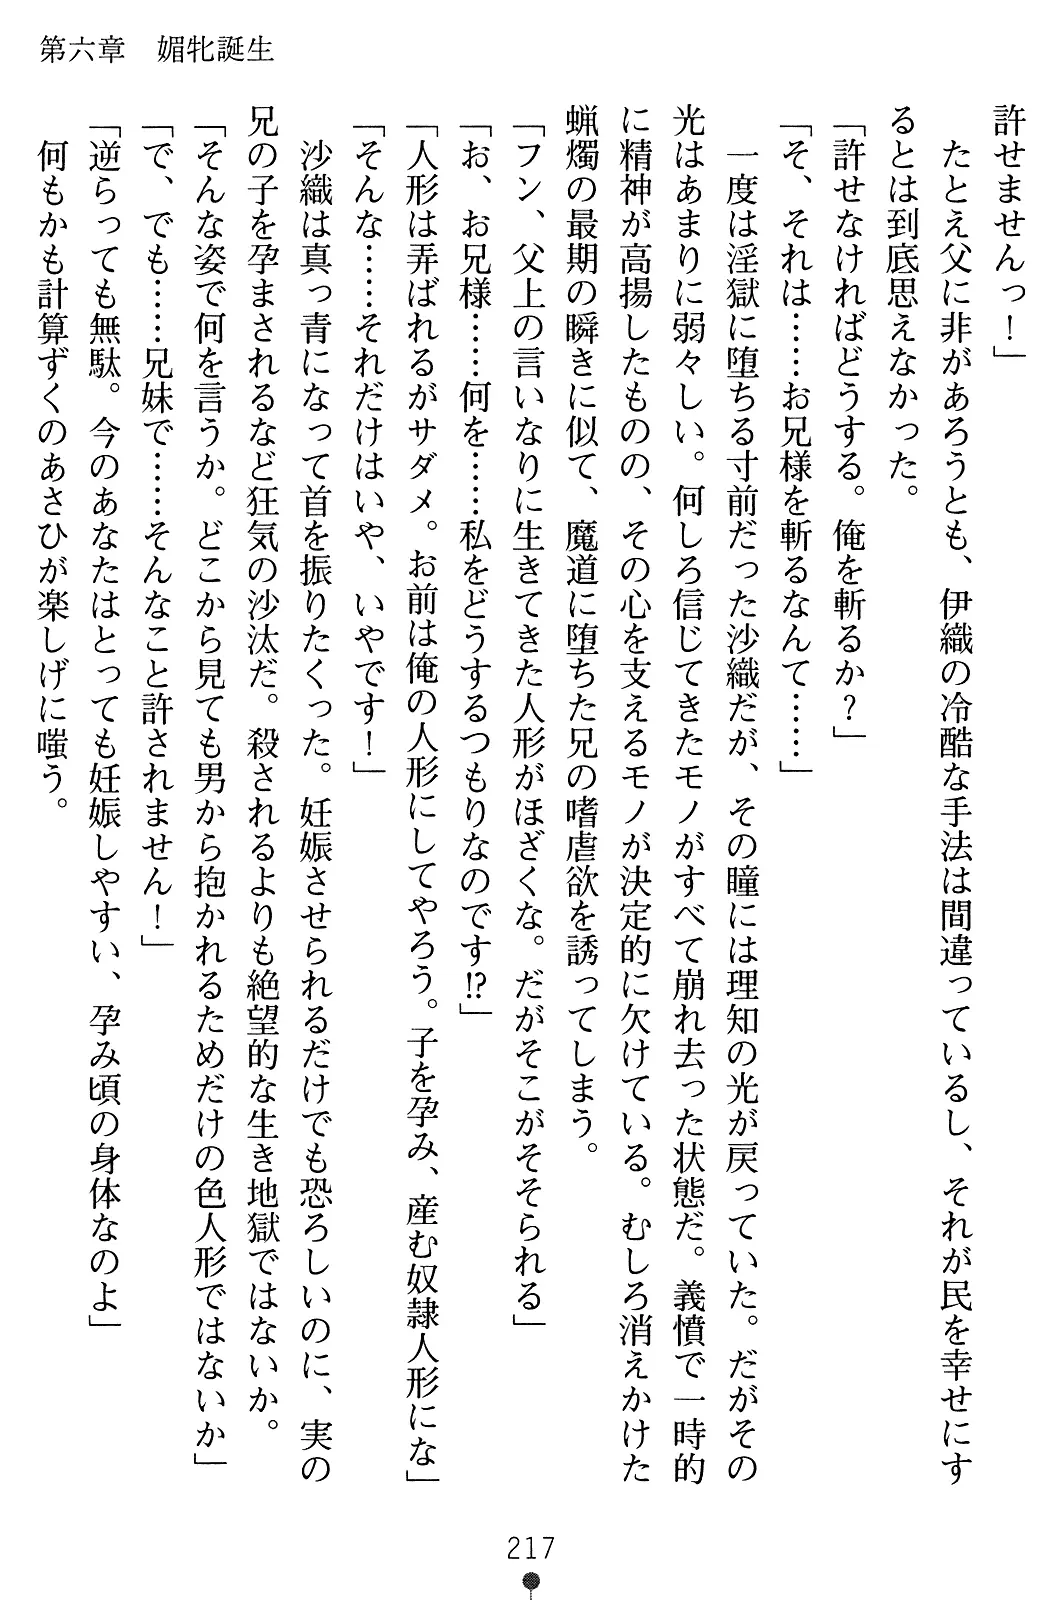 第六章　媚牝誕生
許せませんっ！」
　たとえ父に非があろうとも、伊織の冷酷な手法は間違っているし、それが民を幸せにす
るとは到底思えなかった。
「許せなければどうする。俺を斬るか？」
「そ、それは……お兄様を斬るなんて……」
　一度は淫獄に堕ちる寸前だった沙織だが、その瞳には理知の光が戻っていた。だがその
光はあまりに弱々しい。何しろ信じてきたモノがすべて崩れ去った状態だ。義憤で一時的
に精神が高揚したものの、その心を支えるモノが決定的に欠けている。むしろ消えかけた
蝋燭の最期の瞬きに似て、魔道に堕ちた兄の嗜虐欲を誘ってしまう。
「フン、父上の言いなりに生きてきた人形がほざくな。だがそこがそそられる」
「お、お兄様……何を……私をどうするつもりなのです!?」
「人形は弄ばれるがサダメ。お前は俺の人形にしてやろう。子を孕み、産む奴隷人形にな」
「そんな……それだけはいや、いやです！」
　沙織は真っ青になって首を振りたくった。妊娠させられるだけでも恐ろしいのに、実の
兄の子を孕まされるなど狂気の沙汰だ。殺されるよりも絶望的な生き地獄ではないか。
「そんな姿で何を言うか。どこから見ても男から抱かれるためだけの色人形ではないか」
「で、でも……兄妹で……そんなこと許されません！」
「逆らっても無駄。今のあなたはとっても妊娠しやすい、孕み頃の身体なのよ」
　何もかも計算ずくのあさひが楽しげに嗤う。
217